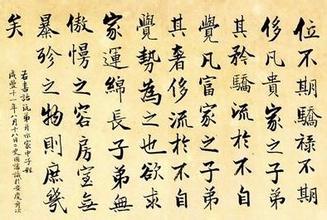 位不期驕祿不期
侈凡貴家之子弟
其矜驕流於不自
覺凡富家之子弟
其奢侈流於不自
覺勢為之也欲求
家運綿長子弟無
傲慢之容房室無
暴殄之物則庶幾
矣
咸豐十一年八月十八日